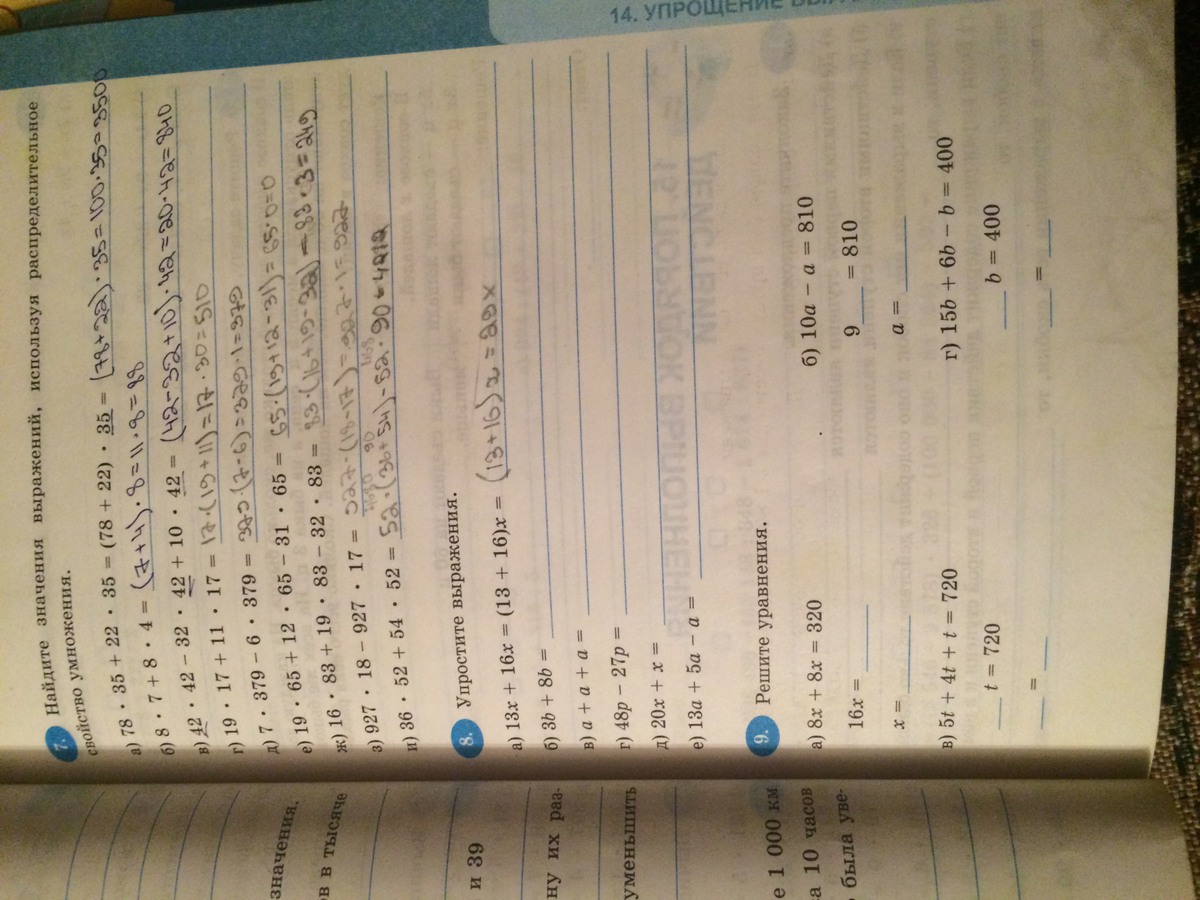 14. УПРОЩЕНИЕ
7. Найдите значения выражений, используя распределительное
свойство умножения.
а) 78 · 35 + 22 · 35 = (78 + 22) · 35 = (78+22)·35=100·35=3500
б) 8 · 7 + 8 · 4 = (7+4)·8=11·8=88
в) 42 · 42 − 32 · 42 + 10 · 42 = (42-32+10)·42=20·42=840
г) 19 · 17 + 11 · 17 = 17·(19+11)=17·30=510
д) 7 · 379 − 6 · 379 = 379·(7-6)=379·1=379
е) 19 · 65 + 12 · 65 − 31 · 65 = 65·(19+12-31)=65·0=0
ж) 16 · 83 + 19 · 83 − 32 · 83 = 83·(16+19-32)=83·3=249
з) 927 · 18 − 927 · 17 = 927·(18-17)=927·1=927
и) 36 · 52 + 54 · 52 = 52·(36+54)=52·90=
8. Упростите выражения.
а) 13x + 16x = (13 + 16)x = (13+16)x=29x
б) 3b + 8b =
в) a + a + a =
г) 48p − 27p =
д) 20x + x =
е) 13a + 5a − a =
9. Решите уравнения.
а) 8x + 8x = 320
16x =
x =
б) 10a − a = 810
9 = 810
a =
в) 5t + 4t + t = 720
t = 720
=
г) 15b + 6b − b = 400
b = 400
=
значения.
ов в тысяче
и 39
ну их раз-
уменьшить
е 1 000 км
а 10 часов
была уве-